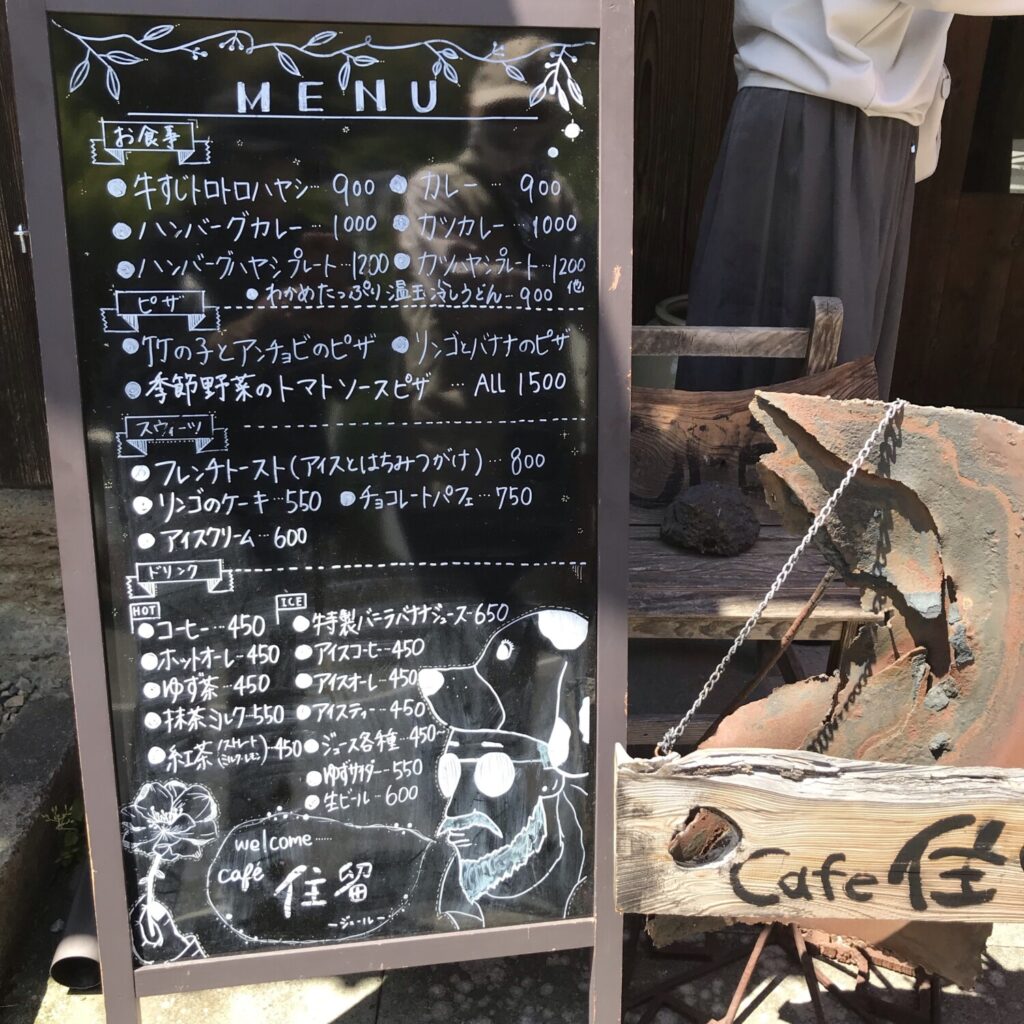 MENU
お食事
牛すじトロトロハヤシ… 900 カレー … 900
ハンバーグカレー … 1000 カツカレー … 1000
ハンバーグハヤシプレート…1200 カツハヤシプレート…1200
他
わかめたっぷり温玉冷しうどん…900
ピザ
竹の子とアンチョビのピザ リンゴとバナナのピザ
季節野菜のトマトソースピザ … ALL 1500
スウィーツ
フレンチトースト(アイスとはちみつがけ)… 800
リンゴのケーキ…550 チョコレートパフェ…750
アイスクリーム…600
ドリンク
HOT ICE
コーヒー…450 牛特製バニラバナナジュース…650
ホットオーレ…450 アイスコーヒー…450
ゆず茶…450 アイスオーレ…450
抹茶ミルク…550 アイスティー…450
紅茶(ストレート ミルク・レモン)…450 ジュース各種…450~
ゆずサイダー…550
生ビール…600
welcome……
café
住留
ージュールー
Cafe 住